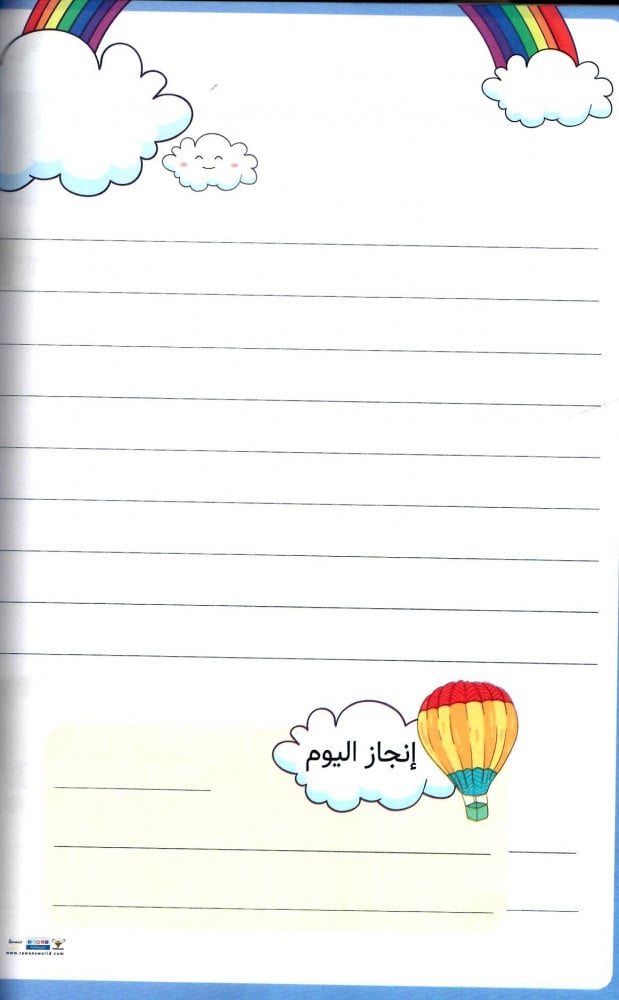 إنجاز اليوم
www.rawansworld.com